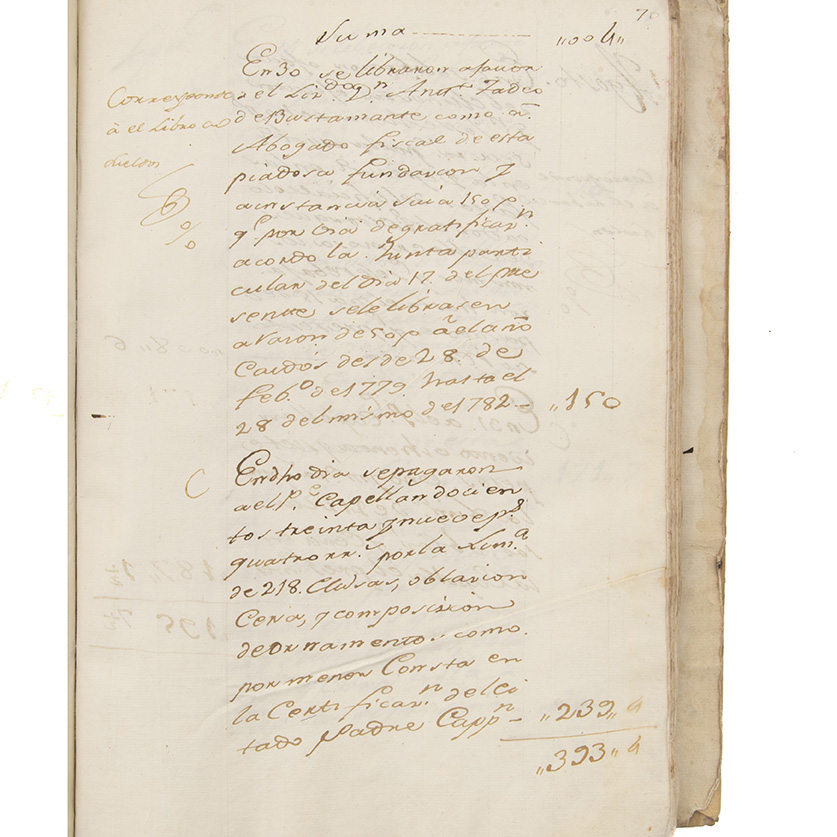 70
Suma „004„
En 30 se libraron a favor
Corresponde
a el Libro de
sueldos
de el Lizdo Dn Anto Tadeo
de Bustamante como a
Abogado fiscal de esta
piadosa fundacion y
a instancia suia 150 p.
q.e por via de gratificaz.n
acordo la Junta parti
cular del dia 17. del pre
sente se le librasen
a razon de 50 p a el año
Caidos desde 28. de
feb.o de 1779. hasta el
28 del mismo de 1782 - „150
C
En dho dia se pagaron
a el P.e Capellan docien
tos treinta y nueve p.s
quatro rr.s por la Lim.a
de 218. Missas, oblacion
Cera, y composizion
de Ornamentos. como.
por menor Consta en
la Certificaz.n del ci
tado Padre Capp.n - „239„4
„393„4